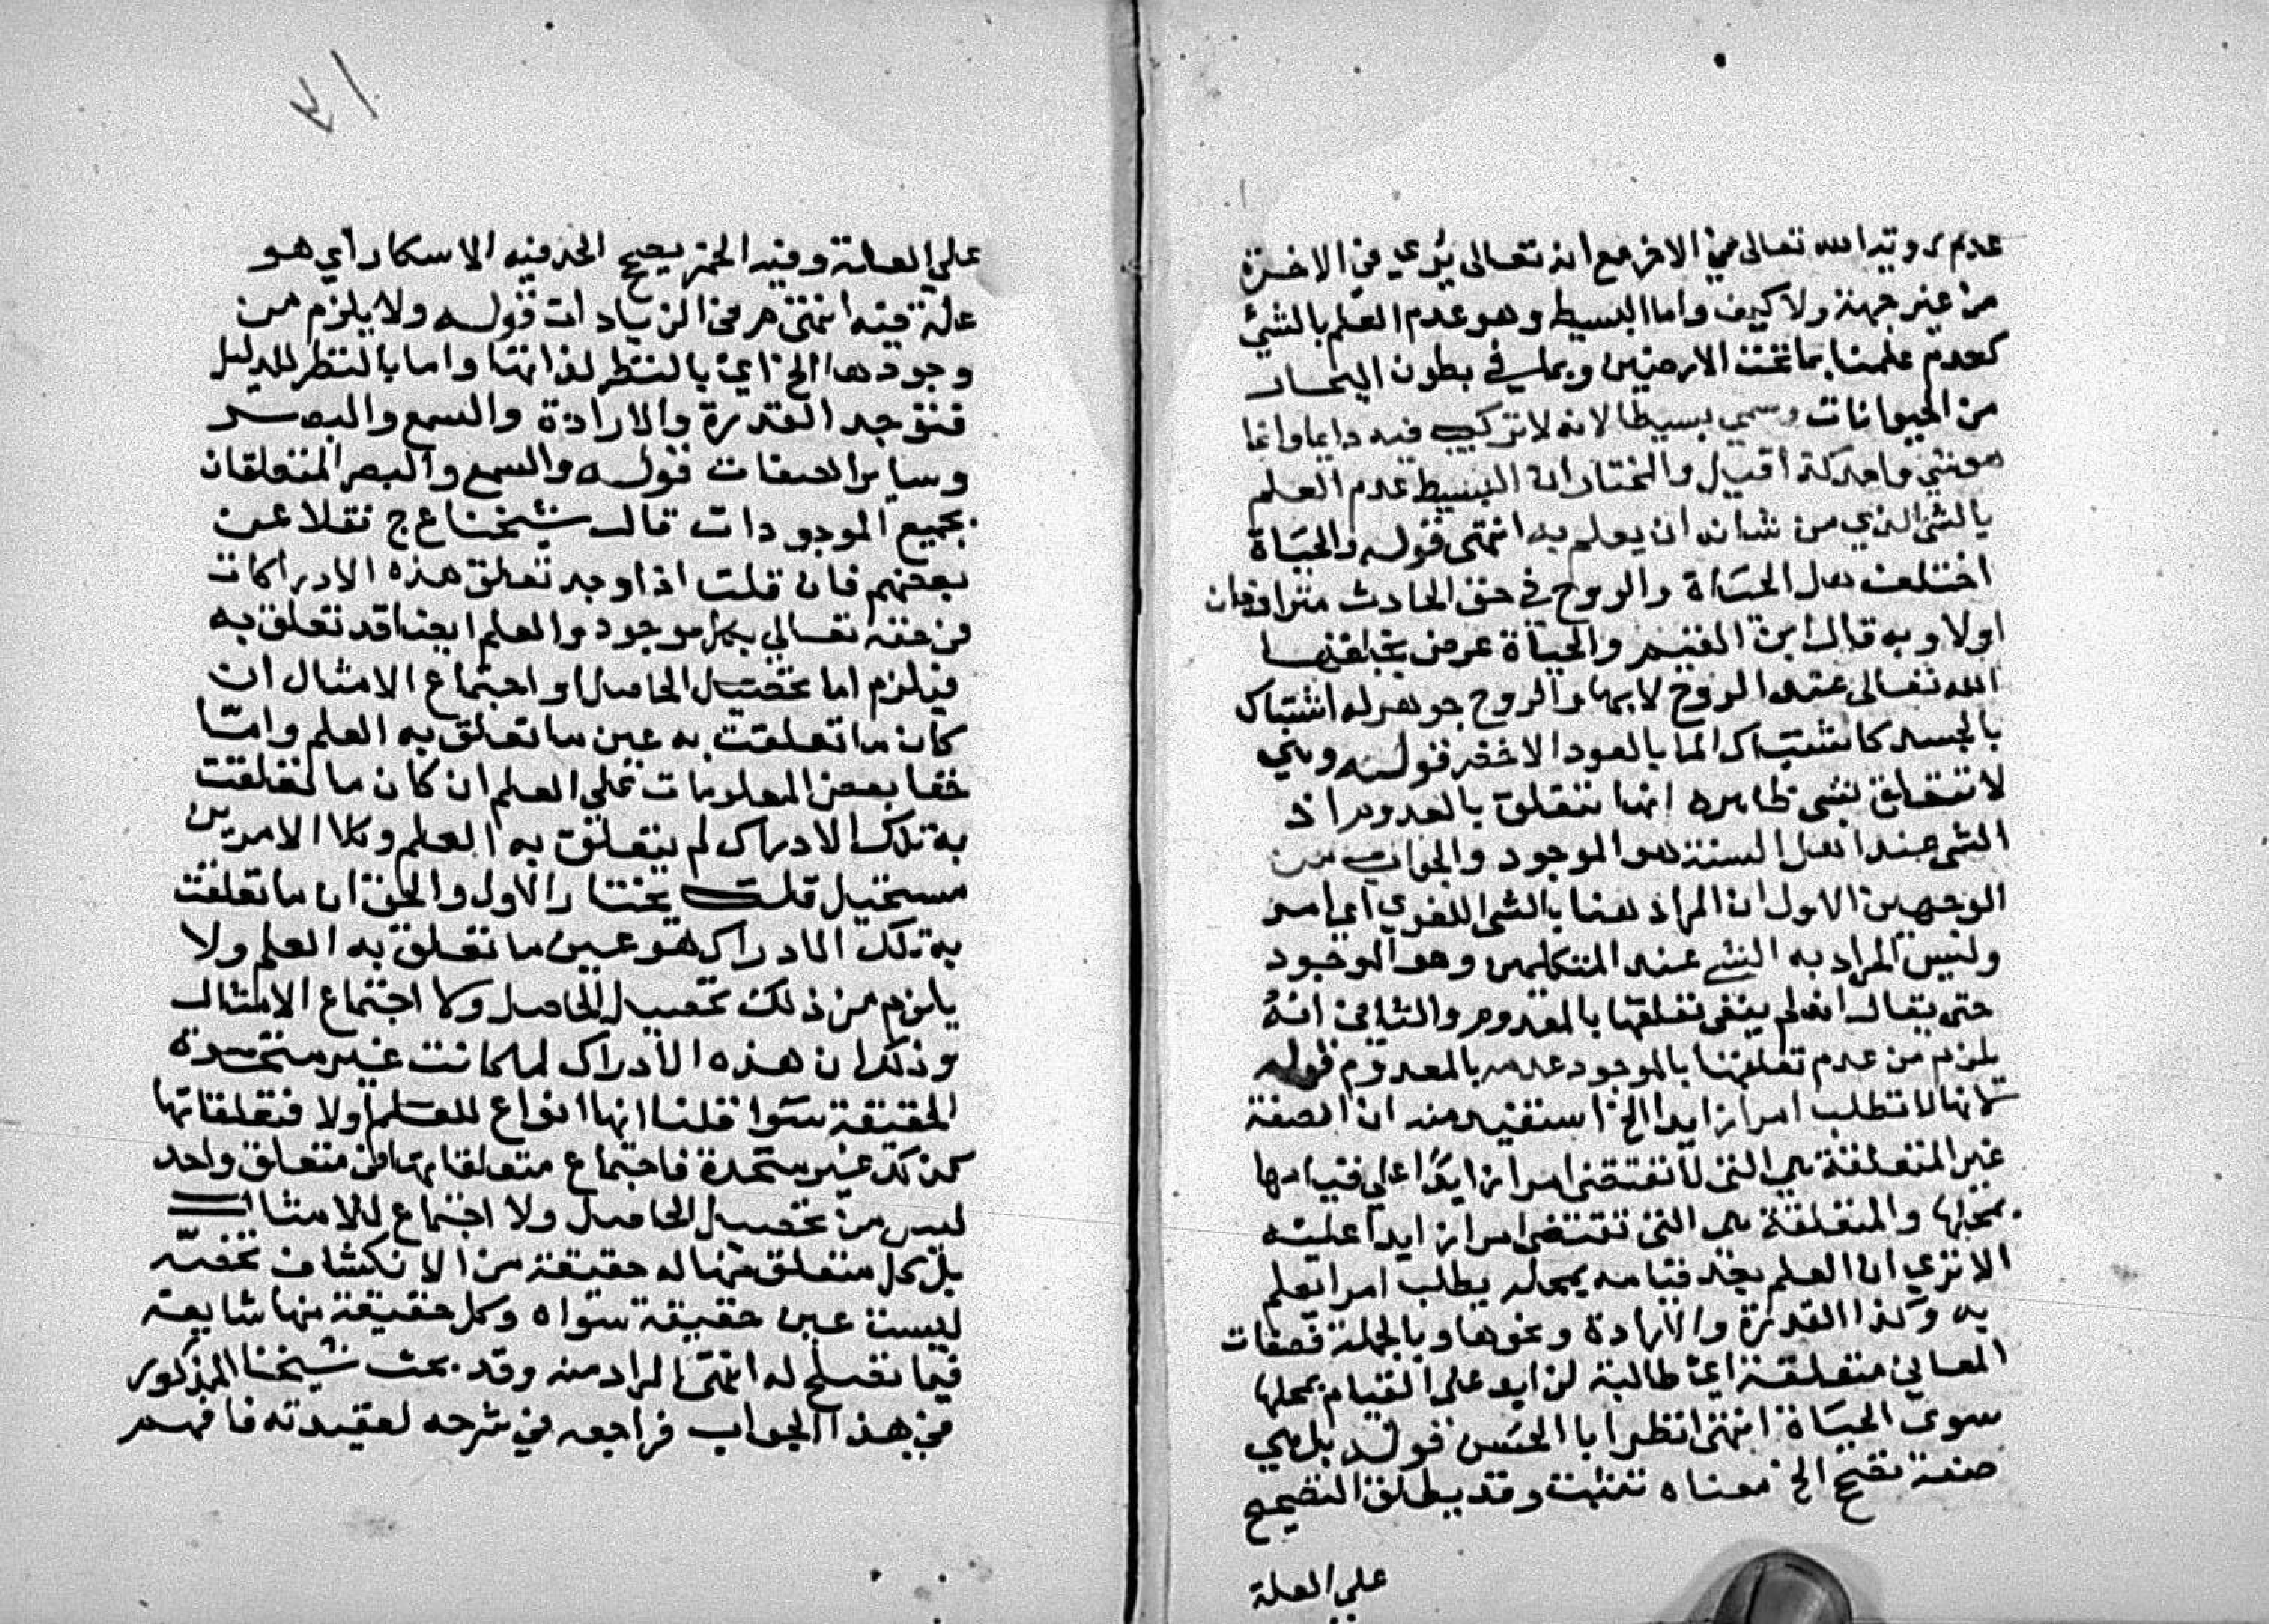 عدم رويته الله تعالى في الاخرة مع انه تعالى يُرى في الاخرة
من غير جهة ولا كيف واما البسيط وهو عدم العلم بالشيء
كعدم علمنا بما تحت الارضين وبما في بطون البحار
من الحيوانات وسمى بسيطا لانه لا تركيب فيه دايما وانما
هو شي واحد كذا قيل والمختار ان البسيط عدم العلم
بالشي الذي من شانه ان يعلم به انتهى قوله والحياة
اختلف هل الحياة والروح في حق الحادث مترادفان
اولا وبه قال ابن القيم والحياة عرض يخلقها
الله تعالى عند الروح لا بها والروح جوهر له اشتباك
بالجسد كاشتباك الما بالعود الاخضر قوله وهي
لا تتعلق بشي ظاهره انها تتعلق بالمعدوم اذ
الشي عند اهل السنة هو الموجود والجواب من
الوجهين الاول ان المراد هنا بالشي اللغوي اي امر
وليس المراد به الشي عند المتكلمين وهو الموجود
حتى يقال انه لم ينفى تعلقها بالمعدوم والثاني انهُ
يلزم من عدم تعلقها بالموجود عدمه بالمعدوم قوله
لانها لا تطلب امرا زايدا الخ استفيد منه ان الصفة
غير المتعلقة هي التي لا تقتضى امرا زايدًا على قيامها
بمحلها والمتعلقة هي التي تقتضى امرا زايدا عليه
الا ترى ان العلم بعد قيامه بمحله يطلب امرا يعلم
به وكذا القدرة والارادة ونحوها وبالجملة فصفات
المعاني متعلقة اي طالبة لزايد على القيام بمحلها
سوى الحياة انتهى انظر ابا الحسن قوله بل هي
صفة تصحح الخ معناه تثبت وقد يطلق التصحيح
على العلة
على العلة وفيه الخمر يصحح الحد فيه الاسكار اي هو
علة فيه انتهى م ر في الزيادات قوله ولا يلزم من
وجودها الخ اي بالنظر لذاتها واما بالنظر للدليل
فتوجد القدرة والارادة والسمع والبصر
وساير الصفات قوله والسمع والبصر المتعلقان
بجميع الموجودات قال شيخنا ع ج نقلا عن
بعضهم فان قلت اذا وجد تعلق هذه الادراكات
في حقه تعالى بكل موجود والعلم ايضا قد تعلق به
فيلزم اما تحصيل الحاصل او اجتماع الامثال ان
كان ما تعلقت به عين ما تعلق به العلم وامّا
خفا بعض المعلومات على العلم ان كان ما تعلقت
به تلك الادراك لم يتعلق به العلم وكلا الامرين
مستحيل قلت يختار الاول والحق ان ما تعلقت
به تلك الادراك هو عين ما تعلق به العلم ولا
يلزم من ذلك تحصيل الحاصل ولا اجتماع الامثال
وذلك ان هذه الادراك لما كانت غير متحدة
الحقيقة سوا قلنا انها انواع للعلم اولا فتعلقاتها
كذلك غير متحدة فاجتماع متعلقاتها في متعلق واحد
ليس من تحصيل الحاصل ولا اجتماع للامثال
بل كل متعلق منها له حقيقة من الانكشاف تخصه
ليست عين حقيقة سواه وكل حقيقة منها شايعة
فيما تصلح له انتهى المراد منه وقد بحث شيخنا المذكور
في هذا الجواب فراجعه في شرحه لعقيدته فافهم